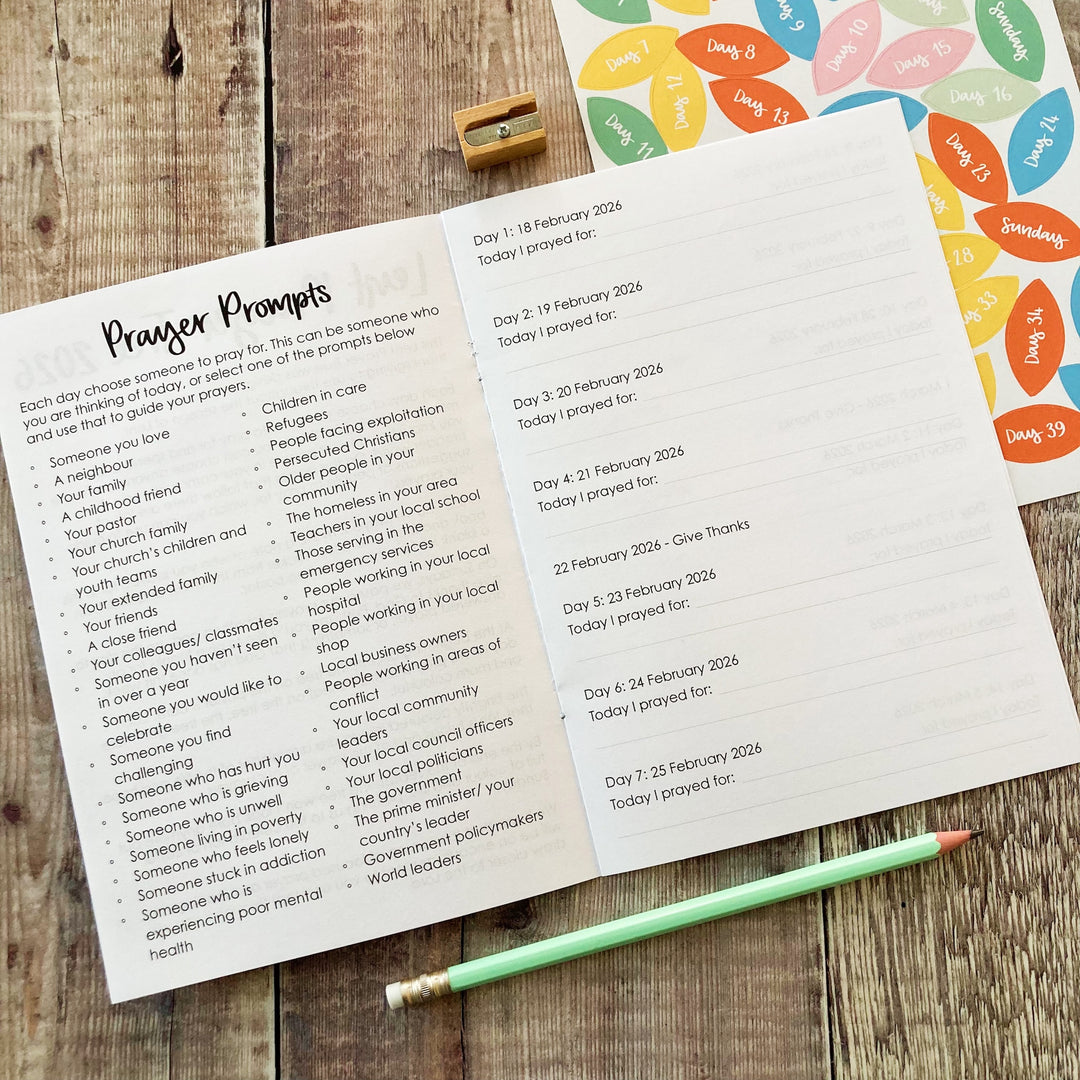 Prayer Prompts
Each day choose someone to pray for. This can be someone who
you are thinking of today, or select one of the prompts below
and use that to guide your prayers.
◦ Someone you love
◦ A neighbour
◦ Your family
◦ A childhood friend
◦ Your pastor
◦ Your church family
◦ Your church's children and
youth teams
◦ Your extended family
◦ Your friends
◦ A close friend
◦ Your colleagues/ classmates
◦ Someone you haven't seen
in over a year
◦ Someone you would like to
celebrate
◦ Someone you find
challenging
◦ Someone who has hurt you
◦ Someone who is grieving
◦ Someone who is unwell
◦ Someone living in poverty
◦ Someone who feels lonely
◦ Someone stuck in addiction
◦ Someone who is
experiencing poor mental
health
◦ Children in care
◦ Refugees
◦ People facing exploitation
◦ Persecuted Christians
◦ Older people in your
community
◦ The homeless in your area
◦ Teachers in your local school
◦ Those serving in the
emergency services
◦ People working in your local
hospital
◦ People working in your local
shop
◦ Local business owners
◦ People working in areas of
conflict
◦ Your local community
leaders
◦ Your local council officers
◦ Your local politicians
◦ The government
◦ The prime minister/ your
country's leader
◦ Government policymakers
◦ World leaders
Day 1: 18 February 2026
Today I prayed for:
Day 2: 19 February 2026
Today I prayed for:
Day 3: 20 February 2026
Today I prayed for:
Day 4: 21 February 2026
Today I prayed for:
22 February 2026 - Give Thanks
Day 5: 23 February 2026
Today I prayed for:
Day 6: 24 February 2026
Today I prayed for:
Day 7: 25 February 2026
Today I prayed for:
Day 7
Day 8
Day 9
Day 10
Sunday
Day 12
Day 15
Day 11
Day 13
Day 16
Day 24
Day 23
Sunday
28
33
Day 34
Day 39